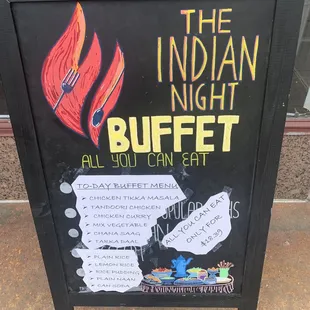 THE
INDIAN
NIGHT
BUFFET
ALL YOU CAN EAT
TO-DAY BUFFET MENU
CHICKEN TIKKA MASALA
TANDOORI CHICKEN
CHICKEN CURRY
MIX VEGETABLE
CHANA SAAG
TARKA DAAL
PLAIN RICE
LEMON RICE
RICE PUDDING
PLAIN NAAN
ALL YOU CAN EAT
ONLY FOR